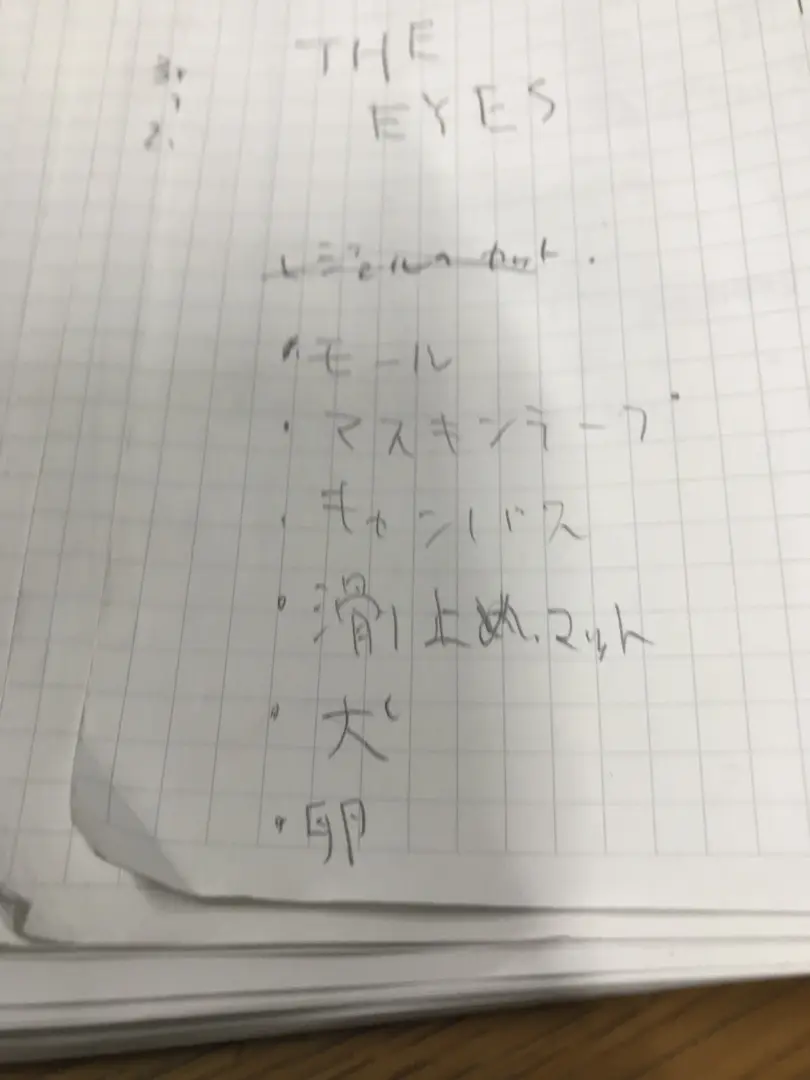 THE
2.
EYES
・モール
・マスキンテープ
・キャンバス
・滑り止めマット
・犬
・卵